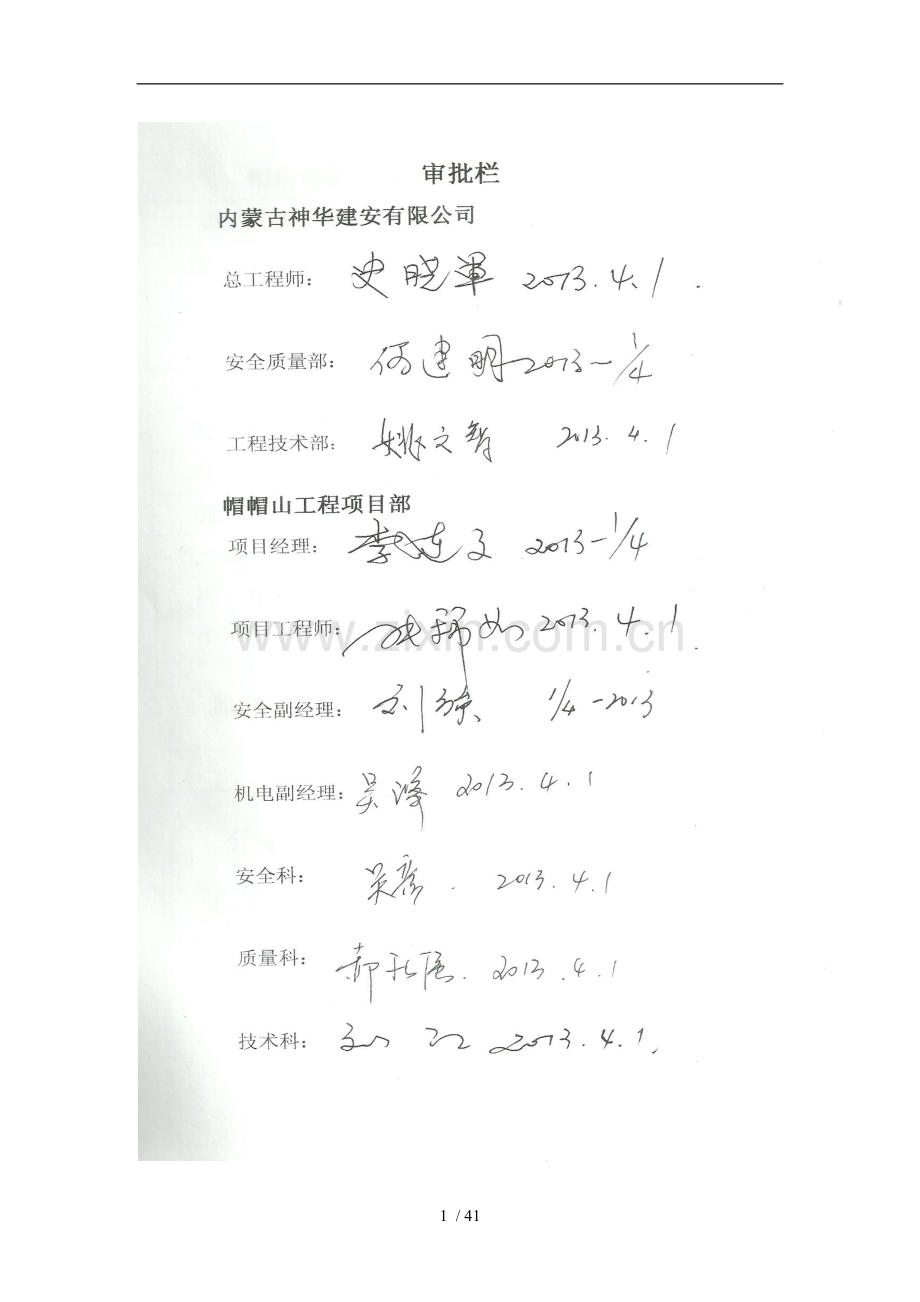 审批栏
内蒙古神华建安有限公司
总工程师： 史晓軍 2013.4.1.
安全质量部： 何建明 2013-1/4
工程技术部： 姚文智 2013.4.1
帽帽山工程项目部
项目经理： 李连文 2013-1/4
项目工程师： 2013.4.1.
www.zlxin.com.cn
安全副经理： 刘 1/4-2013
机电副经理： 吴 2013.4.1
安全科： 吴彦. 2013.4.1
质量科： 郝 2013.4.1
技术科： 2013.4.1.
1 / 41